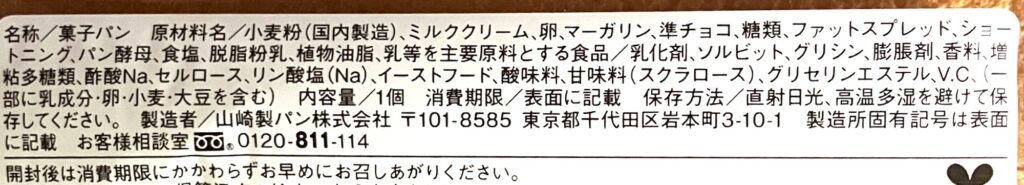 名称/菓子パン 原材料名/小麦粉(国内製造)、ミルククリーム、卵、マーガリン、準チョコ、糖類、ファットスプレッド、ショー
トニング、パン酵母、食塩、脱脂粉乳、植物油脂、乳等を主要原料とする食品/乳化剤、ソルビット、グリシン、膨脹剤、香料、増
粘多糖類、酢酸Na、セルロース、リン酸塩(Na)、イーストフード、酸味料、甘味料(スクラロース)、グリセリンエステル、V.C、(一
部に乳成分・卵・小麦・大豆を含む) 内容量/1個 消費期限/表面に記載 保存方法/直射日光、高温多湿を避けて保
存してください。 製造者/山崎製パン株式会社 〒101-8585 東京都千代田区岩本町3-10-1 製造所固有記号は表面
に記載 お客様相談室 0120-811-114
開封後は消費期限にかかわらずお早めにお召しあがりください。